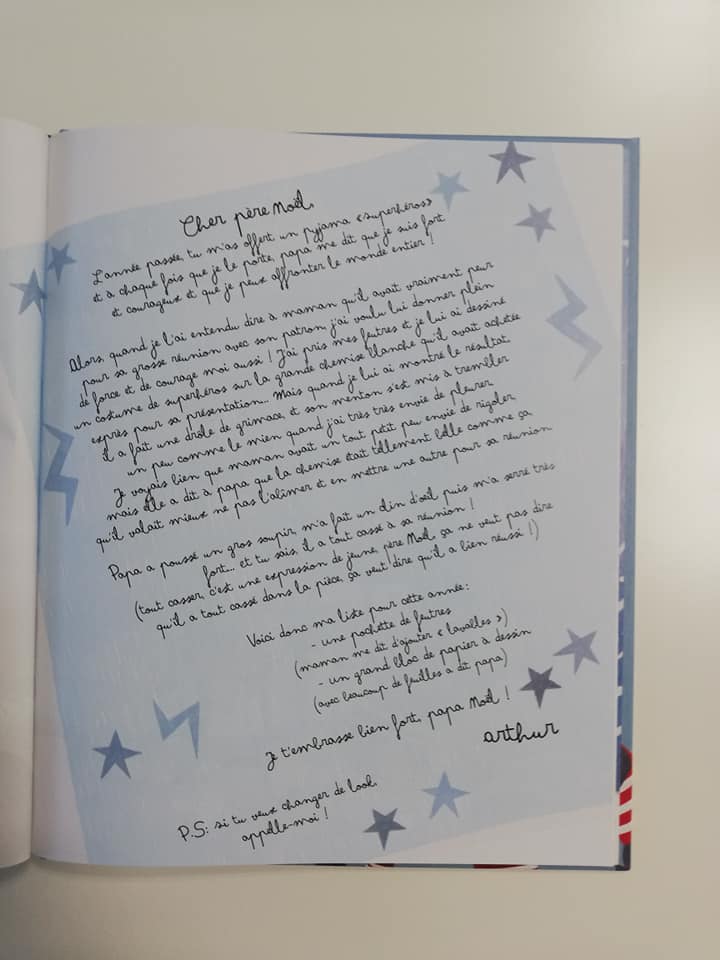 Cher père Noël,
L'année passée, tu m'as offert un pyjama «superhéros»
et à chaque fois que je le porte, papa me dit que je suis fort
et courageux et que je peux affronter le monde entier !
Alors, quand je l'ai entendu dire à maman qu'il avait vraiment peur
pour sa grosse réunion avec son patron, j'ai voulu lui donner plein
de force et de courage moi aussi ! J'ai pris mes feutres et je lui ai dessiné
un costume de superhéros sur la grande chemise blanche qu'il avait achetée
exprès pour sa présentation... Mais quand je lui ai montré le résultat,
il a fait une drôle de grimace, et son menton s'est mis à trembler
un peu comme le mien quand j'ai très très envie de pleurer.
Je voyais bien que maman avait un tout petit peu envie de rigoler,
mais elle a dit à papa que la chemise était tellement belle comme ça
qu'il valait mieux ne pas l'abîmer et en mettre une autre pour sa réunion.
Papa a poussé un gros soupir, m'a fait un clin d'œil puis m'a serré très
fort... et tu sais, il a tout cassé à sa réunion !
(tout casser, c'est une expression de jeune, père Noël, ça ne veut pas dire
qu'il a tout cassé dans la pièce, ça veut dire qu'il a bien réussi !)
Voici donc ma liste pour cette année:
- une pochette de feutres
(maman me dit d'ajouter «lavables»)
- un grand bloc de papier à dessin
(avec beaucoup de feuilles a dit papa)
Je t'embrasse bien fort, papa Noël !
arthur
P.S: si tu veux changer de look,
appelle-moi !